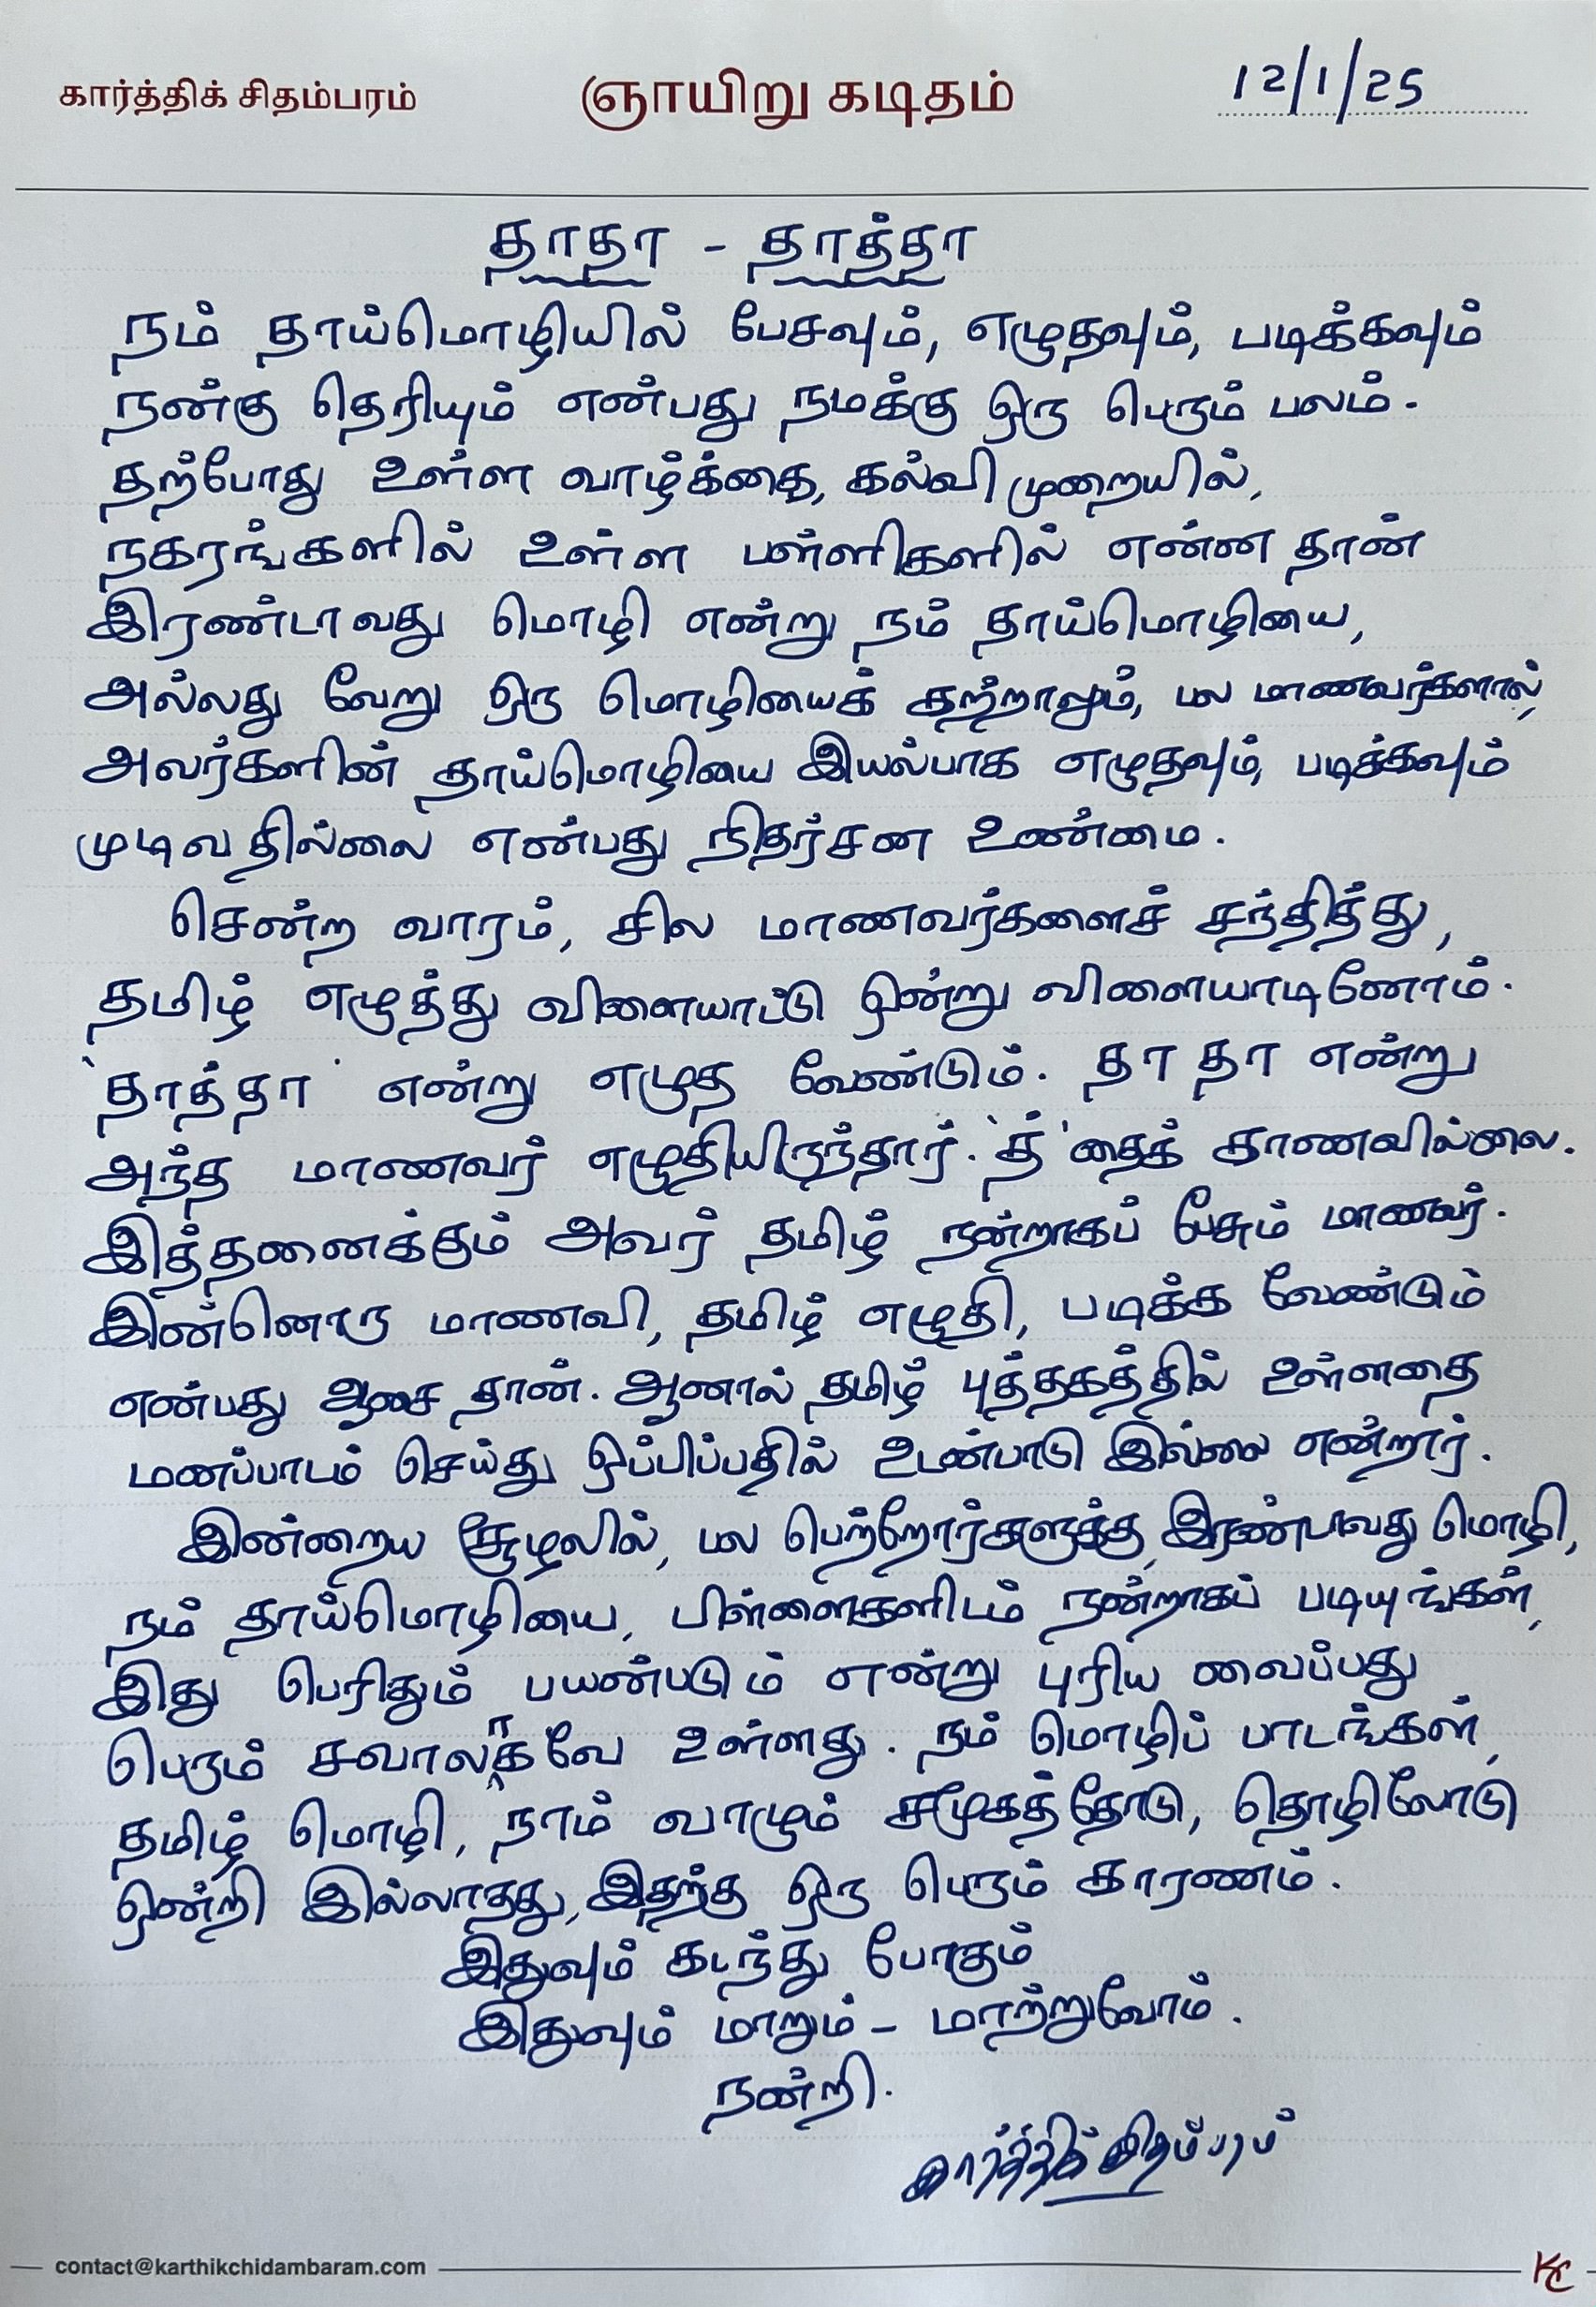 கார்த்திக் சிதம்பரம்
ஞாயிறு கடிதம்
12/1/25
தாதா - தாத்தா
நம் தாய்மொழியில் பேசவும், எழுதவும், படிக்கவும்
நன்கு தெரியும் என்பது நமக்கு ஒரு பெரும் பலம்.
தற்போது உள்ள வாழ்க்கை, கல்வி முறையில்,
நகரங்களில் உள்ள பள்ளிகளில் என்ன தான்
இரண்டாவது மொழி என்று நம் தாய்மொழியை,
அல்லது வேறு ஒரு மொழியைக் கற்றாலும், பல மாணவர்களால்,
அவர்களின் தாய்மொழியை இயல்பாக எழுதவும், படிக்கவும்
முடிவதில்லை என்பது நிதர்சன உண்மை.
சென்ற வாரம், சில மாணவர்களைச் சந்தித்து,
தமிழ் எழுத்து விளையாட்டு ஒன்று விளையாடினோம்.
'தாத்தா' என்று எழுத வேண்டும். தா தா என்று
அந்த மாணவர் எழுதியிருந்தார். 'த்'தைக் காணவில்லை.
இத்தனைக்கும் அவர் தமிழ் நன்றாகப் பேசும் மாணவர்.
இன்னொரு மாணவி, தமிழ் எழுதி, படிக்க வேண்டும்
என்பது ஆசை தான். ஆனால் தமிழ் புத்தகத்தில் உள்ளதை
மனப்பாடம் செய்து ஒப்பிப்பதில் உடன்பாடு இல்லை என்றார்.
இன்றைய சூழலில், பல பெற்றோர்களுக்கு, இரண்டாவது மொழி,
நம் தாய்மொழியை, பிள்ளைகளிடம் நன்றாகப் படியுங்கள்,
இது பெரிதும் பயன்படும் என்று புரிய வைப்பது
பெரும் சவாலாகவே உள்ளது. நம் மொழிப் பாடங்கள்,
தமிழ் மொழி, நாம் வாழும் சமூகத்தோடு, தொழிலோடு
ஒன்றி இல்லாதது, இதற்கு ஒரு பெரும் காரணம்.
இதுவும் கடந்து போகும்
இதுவும் மாறும் - மாற்றுவோம்.
நன்றி.
கார்த்திக் சிதம்பரம்
contact@karthikchidambaram.com
KC